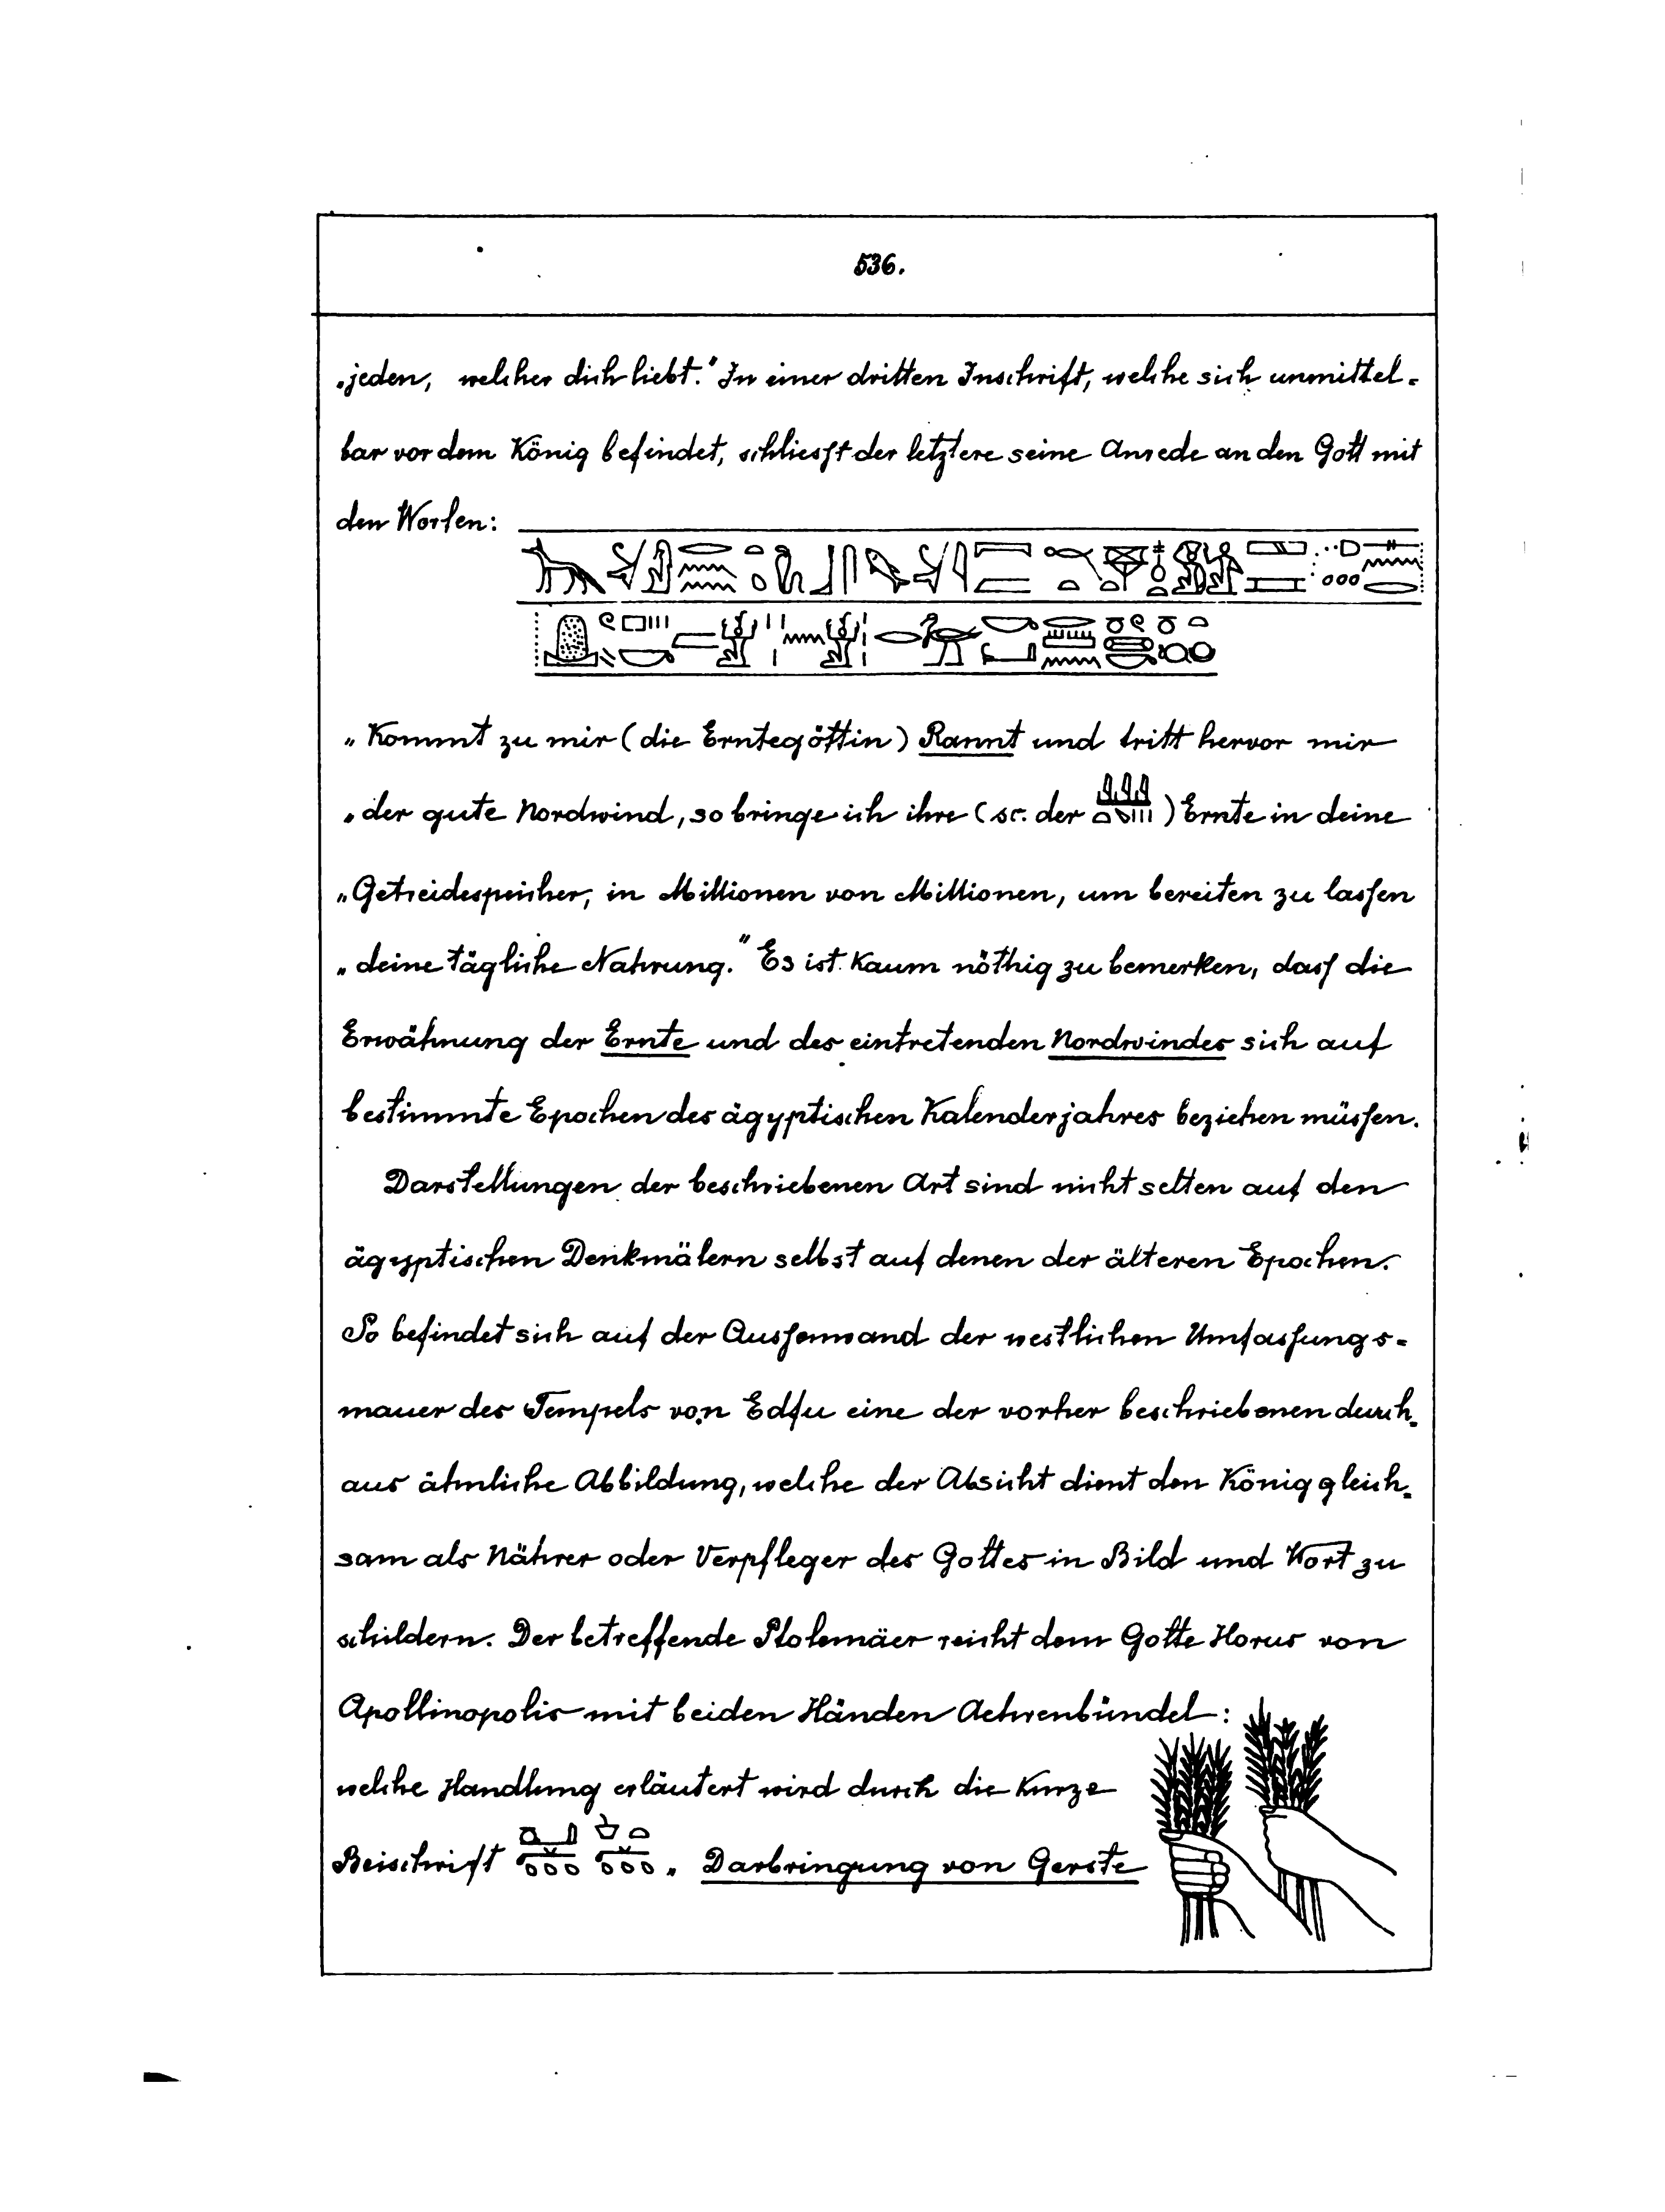 536.
„jeden, welcher dich liebt." In einer dritten Inschrift, welche sich unmittel-
bar vor dem König befindet, schliesst der letztere seine Anrede an den Gott mit
den Worten:
„Kommt zu mir (die Erntegöttin) Rannt und tritt hervor mir
„der gute Nordwind, so bringe ich ihre (sc. der ) Ernte in deine
„Getreidespeicher, in Millionen von Millionen, um bereiten zu lassen
„deine tägliche Nahrung." Es ist kaum nöthig zu bemerken, dass die
Erwähnung der Ernte und des eintretenden Nordwindes sich auf
bestimmte Epochen des ägyptischen Kalenderjahres beziehen müssen.
Darstellungen der beschriebenen Art sind nicht selten auf den
ägyptischen Denkmälern selbst auf denen der älteren Epochen.
So befindet sich auf der Aussenwand der westlichen Umfassungs-
mauer des Tempels von Edfu eine der vorher beschriebenen durch-
aus ähnliche Abbildung, welche der Absicht dient den König gleich-
sam als Nährer oder Verpfleger des Gottes in Bild und Wort zu
schildern. Der betreffende Ptolemäer reicht dem Gotte Horus von
Apollinopolis mit beiden Händen Aehrenbündel:
welche Handlung erläutert wird durch die kurze
Beischrift „Darbringung von Gerste